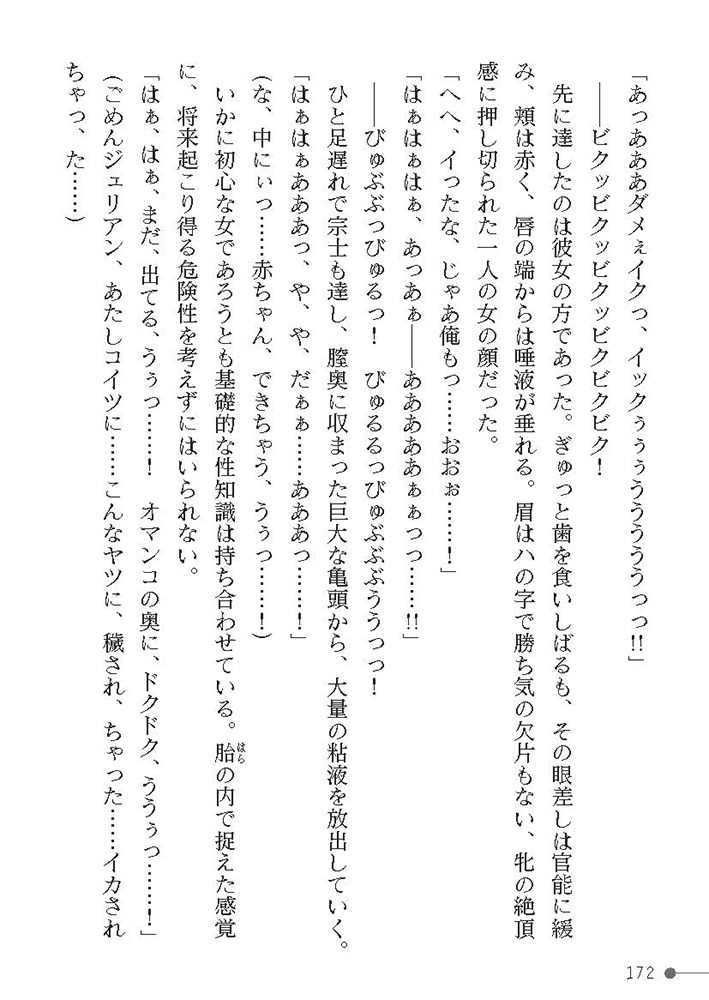 「あっあああダメぇイクっ、イックぅぅぅうううううっっ!!」
――ビクッビクッビクッビクビクビク！
先に達したのは彼女の方であった。ぎゅっと歯を食いしばるも、その眼差しは官能に緩
み、頬は赤く、唇の端からは唾液が垂れる。眉はハの字で勝ち気の欠片もない、牝の絶頂
感に押し切られた一人の女の顔だった。
「へへ、イったな、じゃあ俺もっ……おおぉ……！」
「はぁはぁはぁ、あっあぁ――あああああぁぁっっ……!!」
――びゅぶぶっびゅるっ！　びゅるるっびゅぶぶぶううっっ！
ひと足遅れで宗士も達し、膣奥に収まった巨大な亀頭から、大量の粘液を放出していく。
「はぁはぁあああっ、や、や、だぁぁ……あああっ……！」
（な、中にぃっ……赤ちゃん、できちゃう、うぅっ……！）
いかに初心な女であろうとも基礎的な性知識は持ち合わせている。胎はらの内で捉えた感覚
に、将来起こり得る危険性を考えずにはいられない。
「はぁ、はぁ、まだ、出てる、うぅっ……！　オマンコの奥に、ドクドク、ううぅっ……！」
（ごめんジュリアン、あたしコイツに……こんなヤツに、穢され、ちゃった……イカされ
ちゃっ、た……）
172